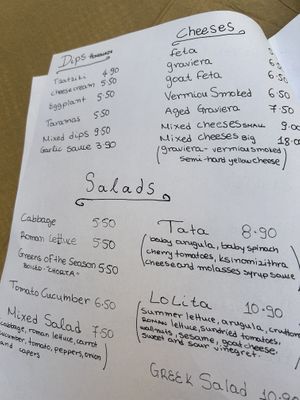 Dips HOMEMADE
Tzatziki 4.90
Cheese cream 5.50
Eggplant 5.50
Taramas 5.50
Mixed dips 9.50
Garlic sauce 3.90
Cheeses
feta
graviera
goat feta 6.50
Vermiou Smoked 6.50
Aged Graviera 7.50
Mixed cheeses SMALL 9.00
Mixed cheeses BIG 18.00
(graviera- vermiou smoked
semi-hard yellow cheese)
Salads
Cabbage 5.50
Roman lettuce 5.50
Greens of the Season 5.50
BOILED "CHORTA"
Tomato Cucumber 6.50
Mixed Salad 7.50
cabbage, roman lettuce, carrot
cucumber, tomato, peppers, onion
and capers
Tata 8.90
(baby arugula, baby spinach
cherry tomatoes, ksinomizithra
cheese and molasses syrup sauce)
LoLita 10.90
(summer lettuce, arugula, croutons
ROMAN lettuce, sundried tomatoes,
wallnuts, sesame, goat cheese,
sweet and sour vinegret.)
GREEK Salad 10.90